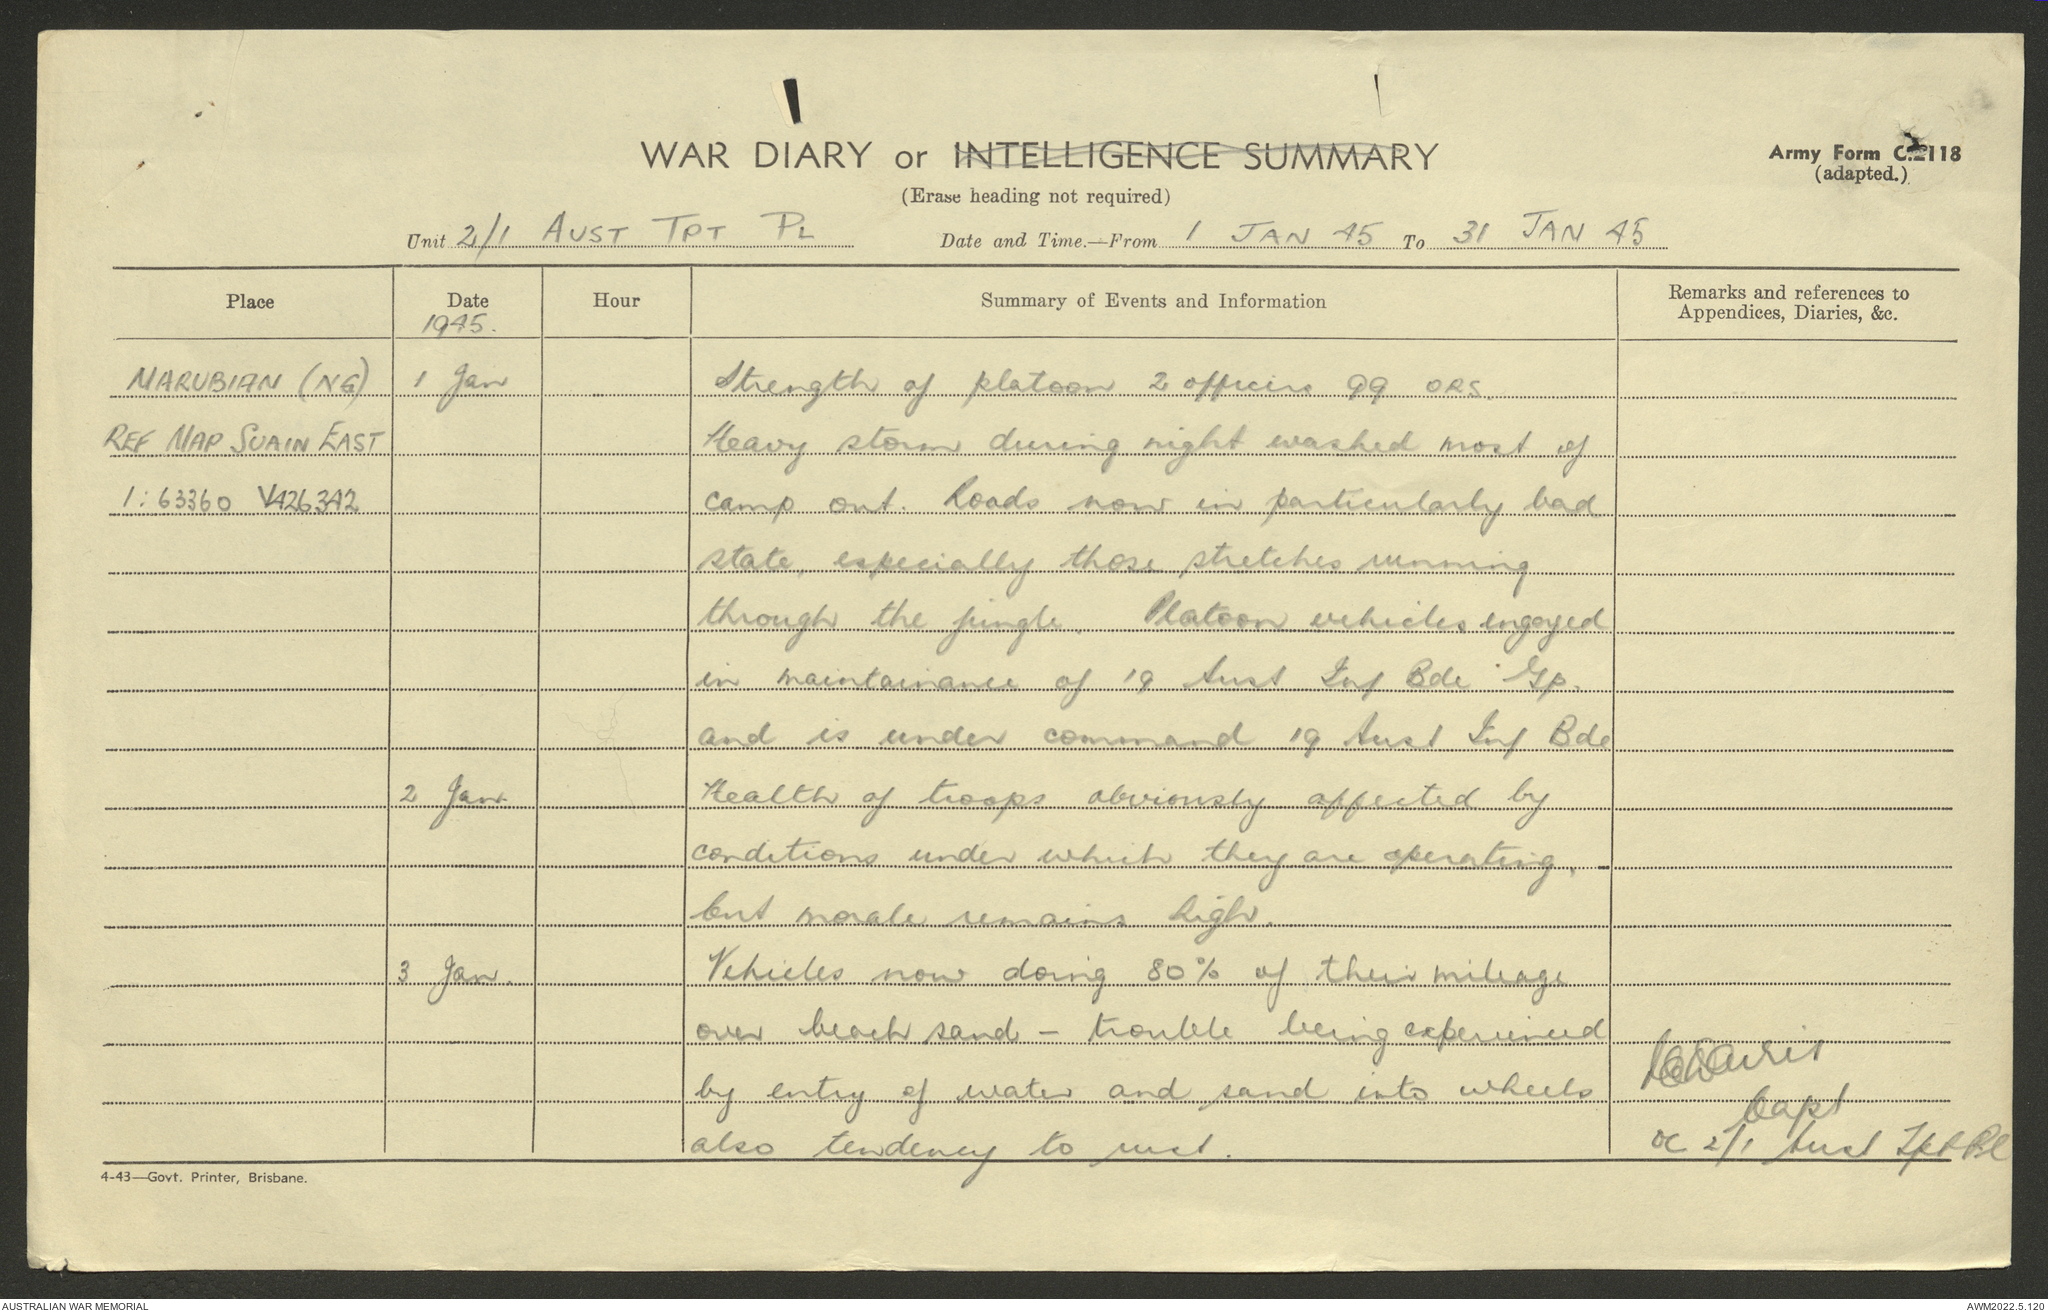 WAR DIARY or INTELLIGENCE SUMMARY
(Erase heading not required)
Army Form C.2118
(adapted.)
Unit 2/1 AUST TPT PL Date and Time.—From 1 JAN 45 To 31 JAN 45
Place Date Hour Summary of Events and Information Remarks and references to
Appendices, Diaries, &c.
1945.
MARUBIAN (NG) 1 Jan Strength of platoon 2 officers 99 ORS.
REF MAP SUAIN EAST Heavy storm during night washed most of
1:63360 V426342 camp out. Roads now in particularly bad
state, especially those stretches running
through the jungle. Platoon vehicles engaged
in maintainance of 19 Aust Inf Bde Gp.
and is under command 19 Aust Inf Bde
2 Jan Health of troops obviously affected by
conditions under which they are operating,
but morale remains high.
3 Jan. Vehicles now doing 80% of their mileage
over beach sand – trouble being experienced
by entry of water and sand into wheels
also tendency to rust.
Capt
OC 2/1 Aust Tpt Pl
4-43—Govt. Printer, Brisbane.
AUSTRALIAN WAR MEMORIAL
AWM2022.5.120